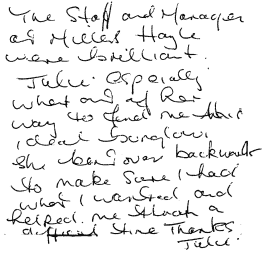 The Staff and Manager
at Miller Hayle
were brilliant.
Julie especially
what out of her
way to find me this
ideal bungalow
she bend over backwards
to make sure I had
what I wanted and
helped me through a
difficult time Thanks
Julie.